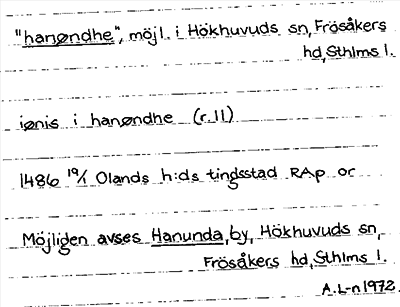 "hanøndhe", möjl. i Hökhuvuds sn, Frösåkers
hd, Sthlms l.
iønis i hanøndhe (r. 11)
1486 19/1 Olands h:ds tingsstad RAp or
Möjligen avses Hanunda, by, Hökhuvuds sn,
Frösåkers hd, Sthlms l.
A. L-n 1972.